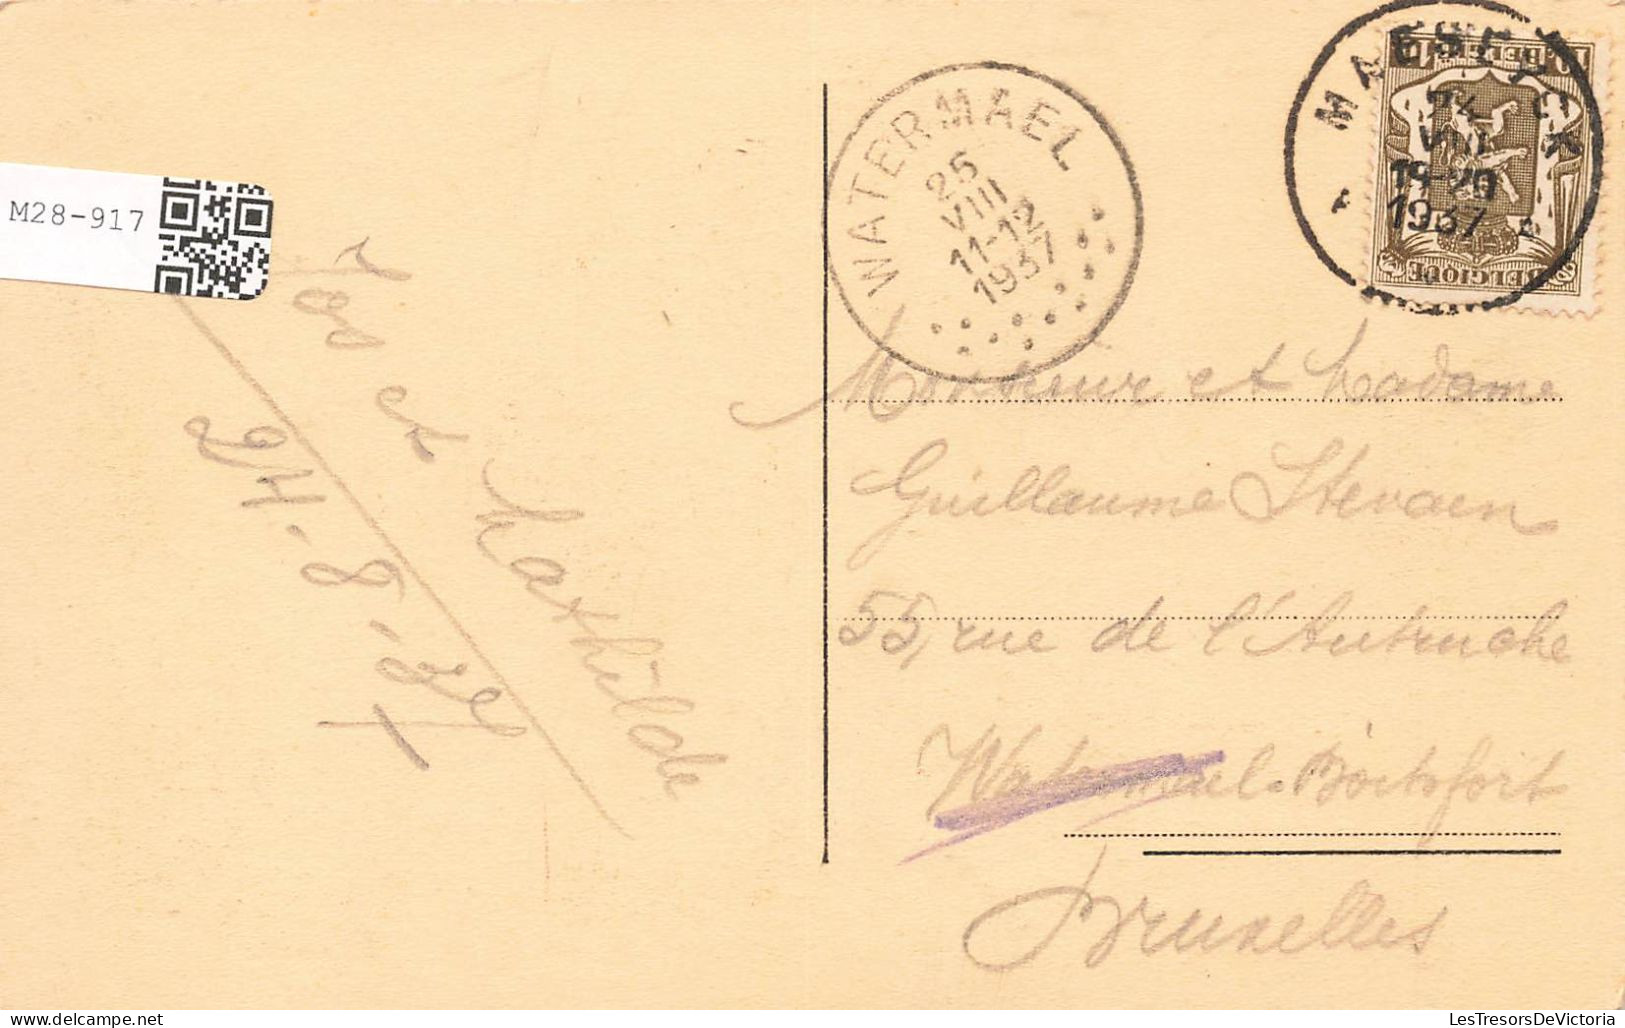 M28-917
Jos et Mathilde
24-8-37
WATERMAEL
25
VIII
11-12
1937
MAESEYCK
24
VIII
19-20
1937
BELGIQUE
Monsieur et Madame
Guillaume Stevaen
55, rue de l'Autruche
Watermael-Boitsfort
Bruxelles
LesTresorsDeVictoria